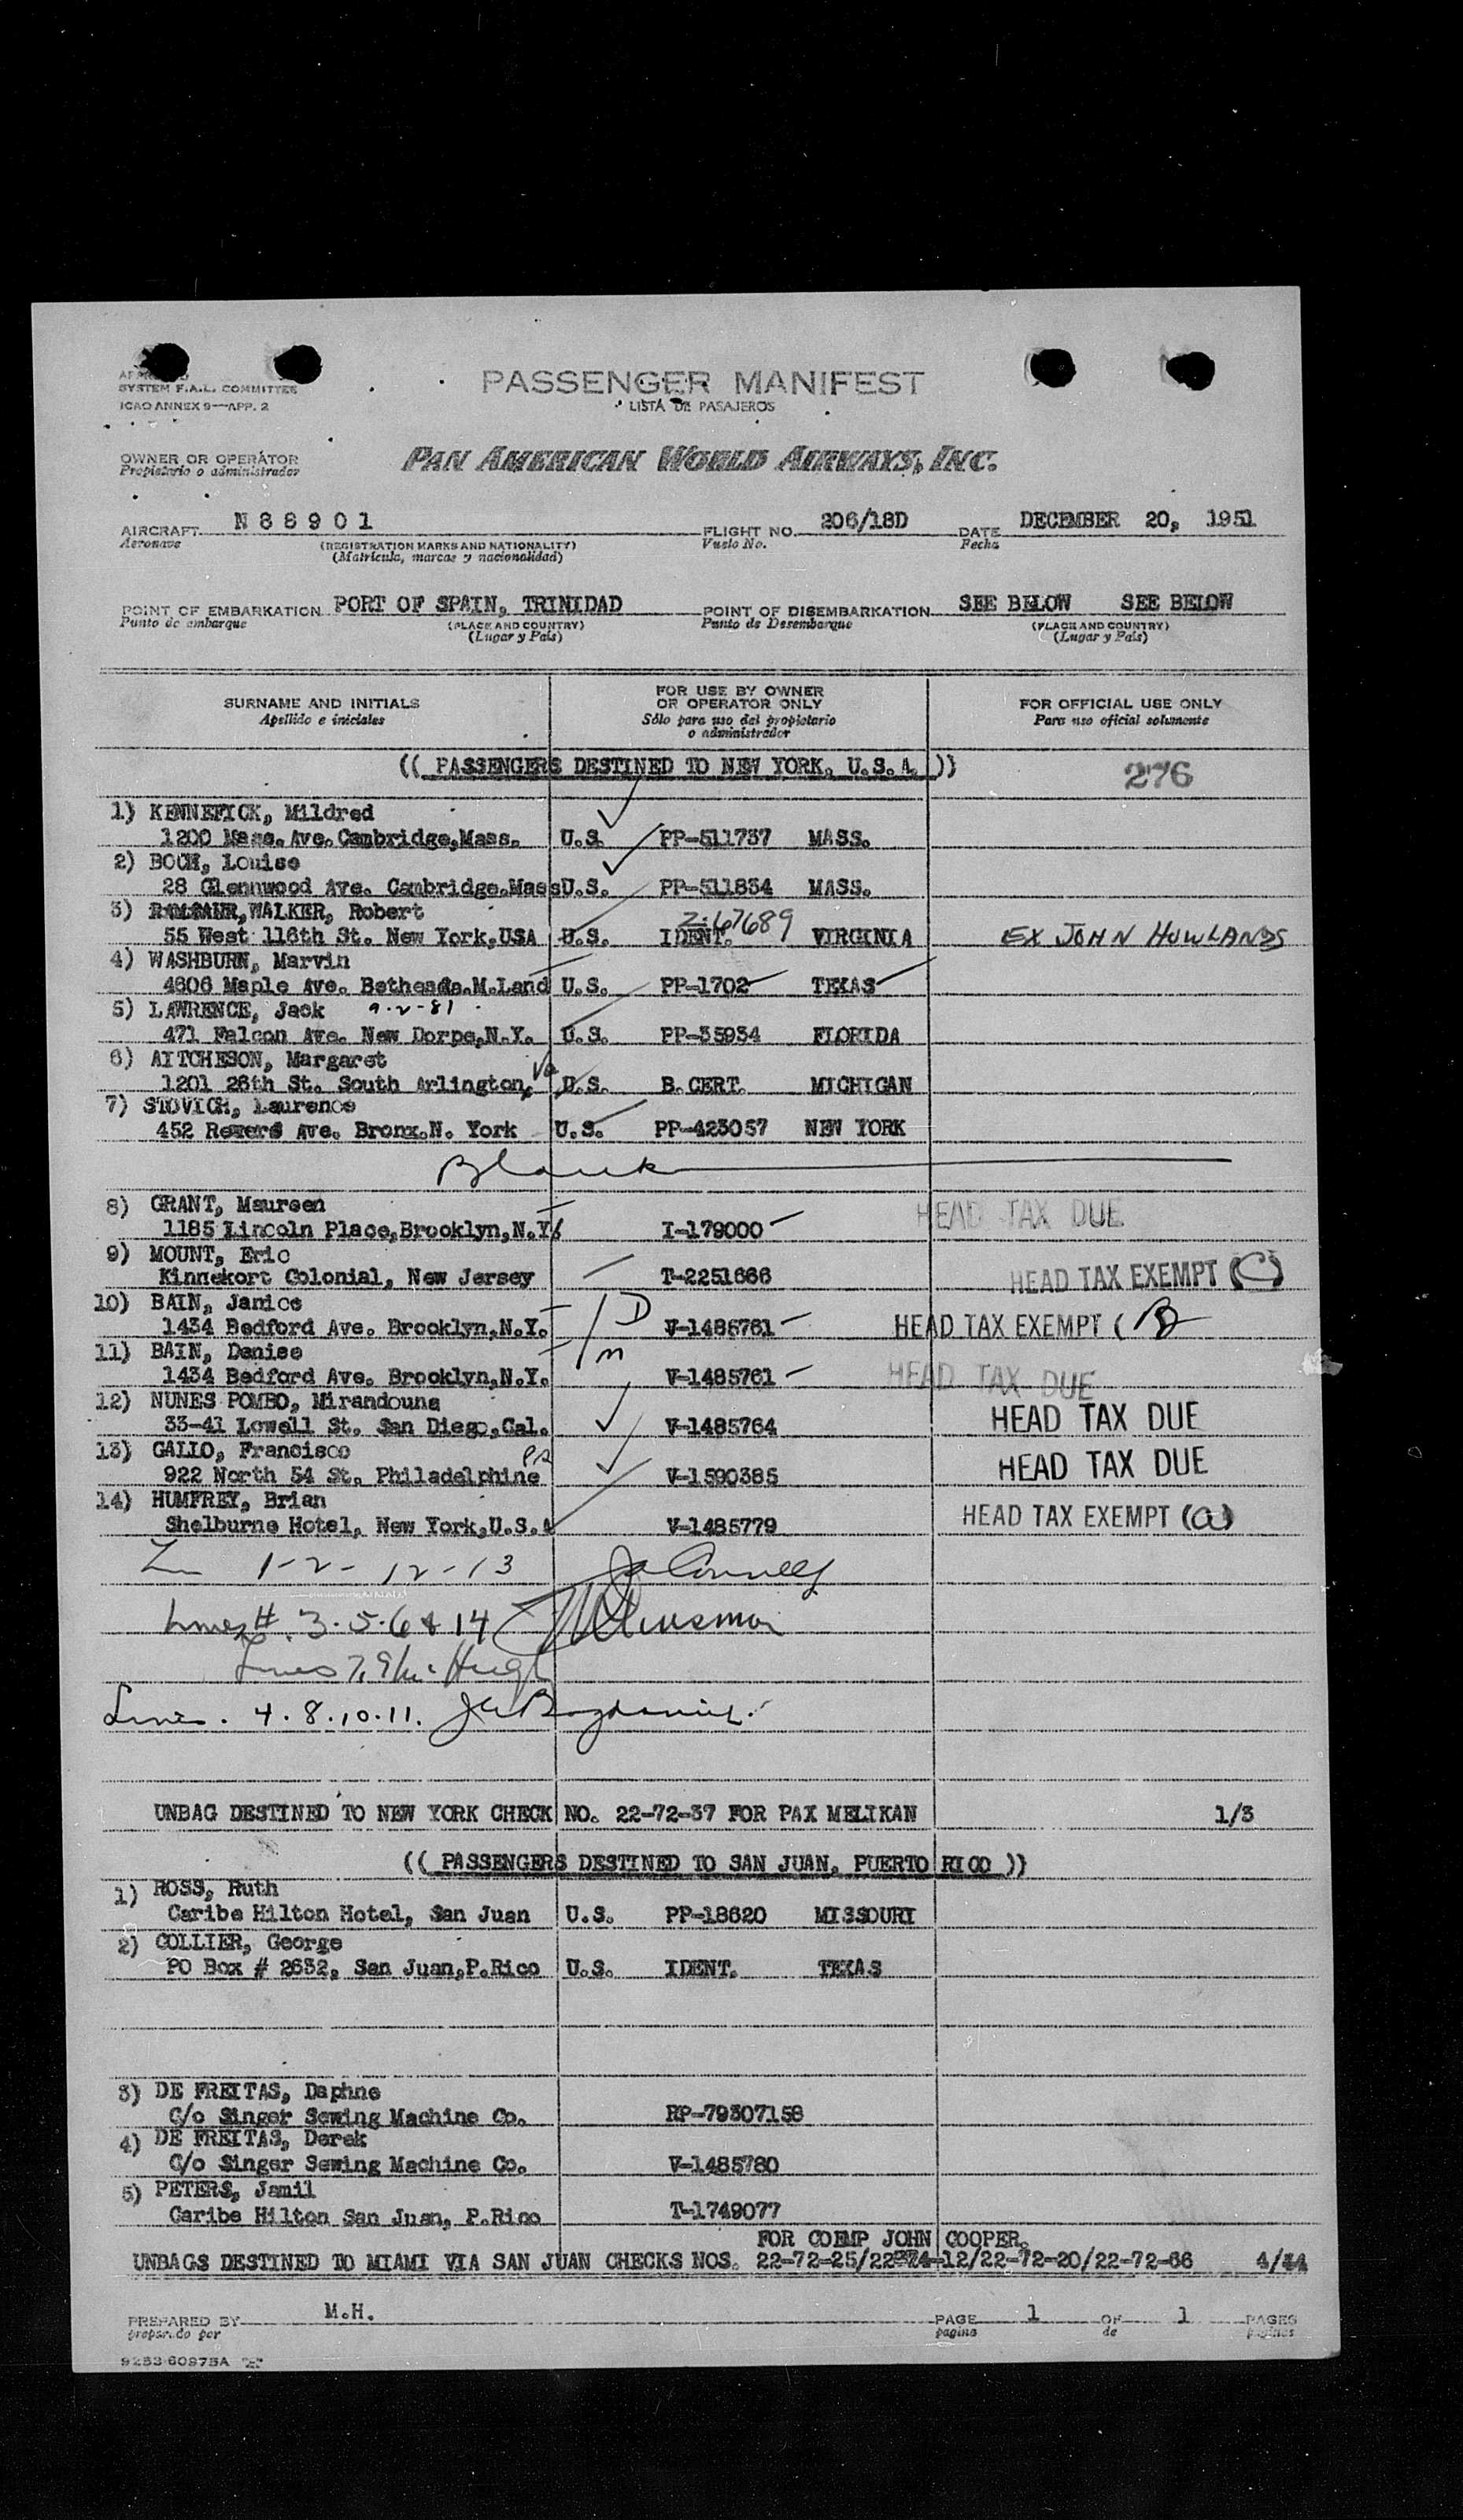 SYSTEM F.A.L. COMMITTEE
ICAO ANNEX 9—APP. 2
PASSENGER MANIFEST
LISTA DE PASAJEROS
OWNER OR OPERATOR
Propietario o administrador
PAN AMERICAN WORLD AIRWAYS, INC.
AIRCRAFT N 8 8 9 0 1 FLIGHT NO. 206/18D DATE DECEMBER 20, 1951
Aeronave (REGISTRATION MARKS AND NATIONALITY) Vuelo No. Fecha
(Matricula, marcas y nacionalidad)
POINT OF EMBARKATION PORT OF SPAIN, TRINIDAD POINT OF DISEMBARKATION SEE BELOW SEE BELOW
Punto de embarque (PLACE AND COUNTRY) Punto de Desembarque (PLACE AND COUNTRY)
(Lugar y País) (Lugar y País)
SURNAME AND INITIALS FOR USE BY OWNER OR OPERATOR ONLY FOR OFFICIAL USE ONLY
Apellido e iniciales Sólo para uso del propietario o administrador Para uso oficial solamente
(( PASSENGERS DESTINED TO NEW YORK, U.S.A. )) 276
1) KENNEFICK, Mildred
1200 Mass. Ave. Cambridge,Mass. U.S. PP-511737 MASS.
2) BOCH, Louise
28 Glennwood Ave. Cambridge.Mass U.S. PP-511834 MASS.
3) WALKER, Robert Z-67689
55 West 116th St. New York.USA U.S. IDENT. VIRGINIA EX JOHN HOWLANDS
4) WASHBURN, Marvin
4606 Maple Ave. Bethesda.M.Land U.S. PP-1702 TEXAS
5) LAWRENCE, Jack 9-2-81
471 Falcon Ave. New Dorpe,N.Y. U.S. PP-35934 FLORIDA
6) AITCHESON, Margaret
1201 26th St. South Arlington, Va U.S. B.CERT. MICHIGAN
7) STOVICH, Laurence
452 Ave. Bronx.N. York U.S. PP-423057 NEW YORK
Blank
8) GRANT, Maureen
1185 Lincoln Place,Brooklyn,N.Y. I-179000 HEAD TAX DUE
9) MOUNT, Eric
Kinnekort Colonial, New Jersey T-2251666 HEAD TAX EXEMPT (C)
10) BAIN, Janice D
1434 Bedford Ave. Brooklyn,N.Y. V-1485761 HEAD TAX EXEMPT (B
11) BAIN, Denise m
1434 Bedford Ave. Brooklyn,N.Y. V-1485761 HEAD TAX DUE
12) NUNES POMBO, Mirandouna
33-41 Lowell St. San Diego,Cal. V-1485764 HEAD TAX DUE
13) GALLO, Francisco
922 North 54 St. Philadelphine V-1590385 HEAD TAX DUE
14) HUMFREY, Brian
Shelburne Hotel, New York,U.S.A V-1485779 HEAD TAX EXEMPT (a)
1-2-12-13
Lines # 3.5.6 & 14
Lines 7,9
Lines. 4.8.10.11.
UNBAG DESTINED TO NEW YORK CHECK NO. 22-72-37 FOR PAX MELIKAN 1/3
(( PASSENGERS DESTINED TO SAN JUAN, PUERTO RICO ))
1) ROSS, Ruth
Caribe Hilton Hotel, San Juan U.S. PP-18620 MISSOURI
2) COLLIER, George
PO Box # 2632, San Juan,P.Rico U.S. IDENT. TEXAS
3) DE FREITAS, Daphne
C/o Singer Sewing Machine Co. RP-79307158
4) DE FREITAS, Derek
C/o Singer Sewing Machine Co. V-1485780
5) PETERS, Jamil
Caribe Hilton San Juan, P.Rico T-1749077
FOR COEMP JOHN COOPER.
UNBAGS DESTINED TO MIAMI VIA SAN JUAN CHECKS NOS. 22-72-25/22-74-12/22-72-20/22-72-66
PREPARED BY M.H. PAGE 1 OF 1 PAGES
preparado por pagina de paginas